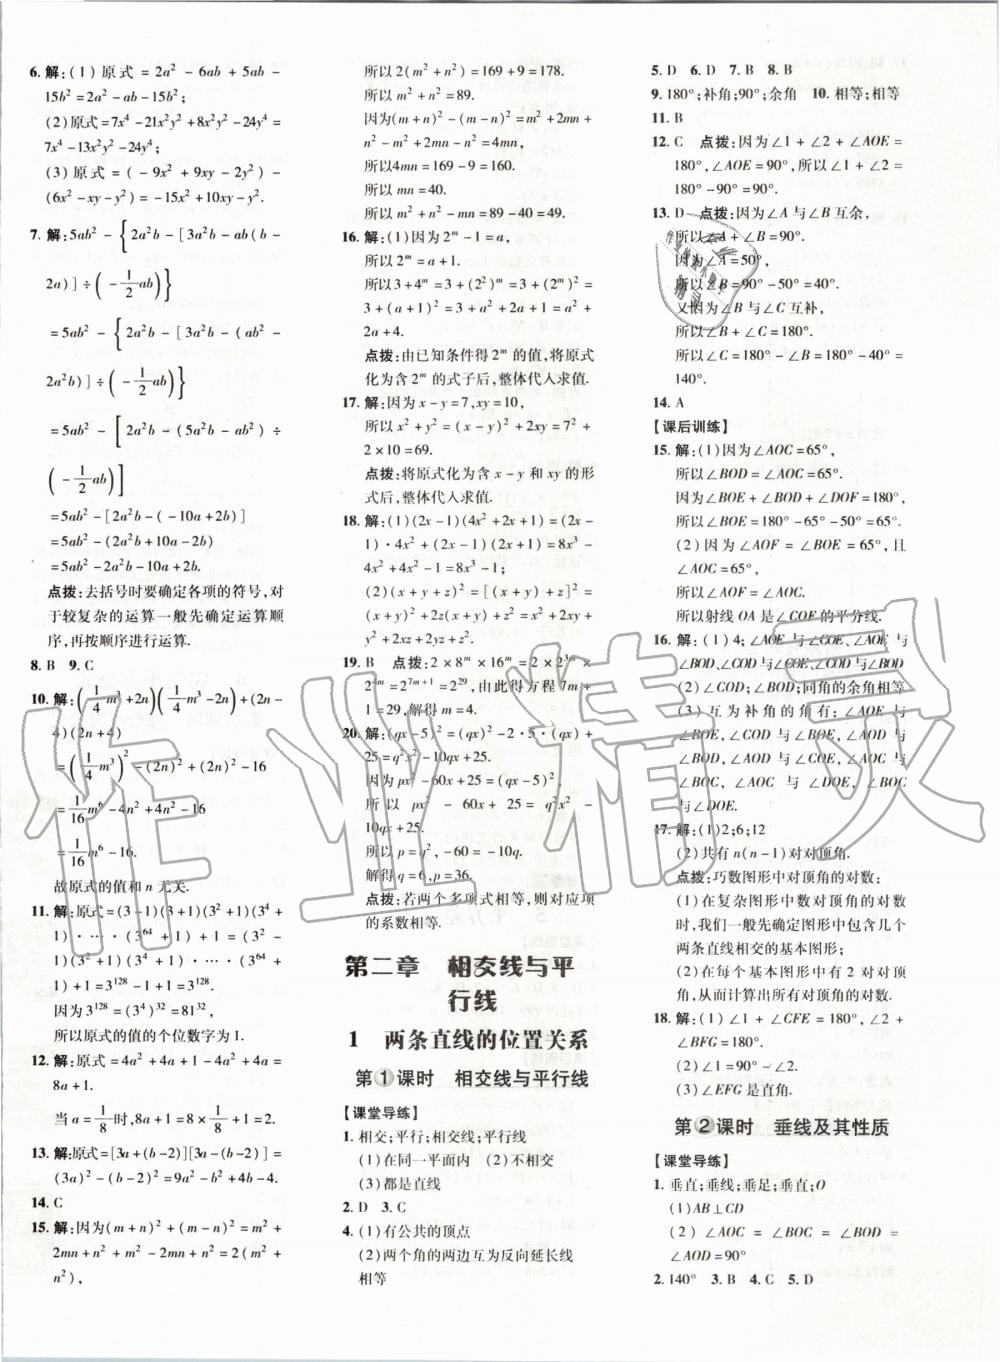 6. 解:(1)原式=2a²-6ab+5ab-
15b²=2a²-ab-15b²;
(2)原式=7x⁴-21x²y²+8x²y²-24y⁴=
7x⁴-13x²y²-24y⁴;
(3)原式=(-9x²+9xy-2y²)-
(6x²-xy-y²)=-15x²+10xy-y².
7. 解:5ab²-{2a²b-[3ab-ab(b-
2a)]÷(-1/2ab)}
=5ab²-{2a²b-[3a²b-(ab²-
2a²b)]÷(-1/2ab)}
=5ab²-[2a²b-(5a²b-ab²)÷
(-1/2ab)]
=5ab²-[2a²b-(-10a+2b)]
=5ab²-(2a²b+10a-2b)
=5ab²-2a²b-10a+2b.
点拨:去括号时要确定各项的符号,对
于较复杂的运算一般先确定运算顺
序,再按顺序进行运算.
8. B 9. C
10. 解:(1/4m³+2n)(1/4m³-2n)+(2n-
4)(2n+4)
=(1/4m³)²-(2n)²+(2n)²-16
=1/16m⁶-4n²+4n²-16
=1/16m⁶-16.
故原式的值和n无关.
11. 解:原式=(3-1)(3+1)(3²+1)(3⁴+
1)·…·(3⁶⁴+1)+1=(3²-1)(3²+
1)(3⁴+1)·…·(3⁶⁴+1)+1=(3¹²⁸-
1)+1=3¹²⁸-1+1=3¹²⁸.
因为3¹²⁸=(3⁴)³²=81³²,
所以原式的值的个位数字为1.
12. 解:原式=4a²+4a+1-4a²+4a=
8a+1.
当a=1/8时,8a+1=8×1/8+1=2.
13. 解:原式=[3a+(b-2)][3a-(b-2)]=
(3a)²-(b-2)²=9a²-b²+4b-4.
14. C
15. 解:因为(m+n)²+(m-n)²=m²+
2mn+n²+m²-2mn+n²=2(m²+
n²),
所以2(m²+n²)=169+9=178.
所以m²+n²=89.
因为(m+n)²-(m-n)²=m²+2mn+
n²-m²+2mn-n²=4mn,
所以4mn=169-9=160.
所以mn=40.
所以m²+n²-mn=89-40=49.
16. 解:(1)因为2ᵐ-1=a,
所以2ᵐ=a+1.
所以3+4ᵐ=3+(2²)ᵐ=3+(2ᵐ)²=
3+(a+1)²=3+a²+2a+1=a²+
2a+4.
点拨:由已知条件得2ᵐ的值,将原式
化为含2ᵐ的式子后,整体代入求值.
17. 解:因为x-y=7,xy=10,
所以x²+y²=(x-y)²+2xy=7²+
2×10=69.
点拨:将原式化为含x-y和xy的形
式后,整体代入求值.
18. 解:(1)(2x-1)(4x²+2x+1)=(2x-
1)·4x²+(2x-1)(2x+1)=8x³-
4x²+4x²-1=8x³-1;
(2)(x+y+z)²=[(x+y)+z]²=
(x+y)²+2z(x+y)+z²=x²+2xy+
y²+2xz+2yz+z².
19. B 点拨:2×8ᵐ×16ᵐ=2×2³ᵐ×
2⁴ᵐ=2⁷ᵐ⁺¹=2²⁹,由此得方程7m+
1=29,解得m=4.
20. 解:(qx-5)²=(qx)²-2·5·(qx)+
25=q²x²-10qx+25.
因为px²-60x+25=(qx-5)²,
所以px²-60x+25=q²x²-
10qx+25.
所以p=q²,-60=-10q.
解得q=6,p=36.
点拨:若两个多项式相等,则对应项
的系数相等.
第二章 相交线与平
行线
1 两条直线的位置关系
第1课时 相交线与平行线
【课堂导练】
1. 相交;平行;相交线;平行线
(1)在同一平面内 (2)不相交
(3)都是直线
2. D 3. C
4. (1)有公共的顶点
(2)两个角的两边互为反向延长线
相等
5. D 6. D 7. B 8. B
9. 180°;补角;90°;余角 10. 相等;相等
11. B
12. C 点拨:因为∠1+∠2+∠AOE=
180°,∠AOE=90°,所以∠1+∠2=
180°-90°=90°.
13. D 点拨:因为∠A与∠B互余,
所以∠A+∠B=90°.
因为∠A=50°,
所以∠B=90°-50°=40°.
又因为∠B与∠C互补,
所以∠B+∠C=180°.
所以∠C=180°-∠B=180°-40°=
140°.
14. A
【课后训练】
15. 解:(1)因为∠AOC=65°,
所以∠BOD=∠AOC=65°.
因为∠BOE+∠BOD+∠DOF=180°,
所以∠BOE=180°-65°-50°=65°.
(2)因为∠AOF=∠BOE=65°,且
∠AOC=65°,
所以∠AOF=∠AOC.
所以射线OA是∠COF的平分线.
16. 解:(1)4;∠AOE与∠COE、∠AOE与
∠BOD、∠COD与∠COE、∠COD与∠BOD
(2)∠COD;∠BOD;同角的余角相等
(3)互为补角的角有:∠AOE与
∠BOE,∠COD与∠BOE,∠AOD与
∠BOD,∠AOD与∠COE,∠AOC与
∠BOC,∠AOC与∠DOE,∠BOC
与∠DOE.
17. 解:(1)2;6;12
(2)共有n(n-1)对对顶角.
点拨:巧数图形中对顶角的对数:
(1)在复杂图形中数对顶角的对数
时,我们一般先确定图形中包含几个
两条直线相交的基本图形;
(2)在每个基本图形中都有两对对顶
角,进而计算出所有对顶角的对数.
18. 解:(1)∠1+∠CFE=180°,∠2+
∠BFG=180°.
(2)∠1=∠2.
(3)∠EFG是直角.
第2课时 垂线及其性质
【课堂导练】
1. 垂直;垂线;垂足;垂直;O
(1)AB⊥CD
(2)∠AOC=∠BOC=∠BOD=
∠AOD=90°
2. 140° 3. B 4. C 5. D
作业精灵